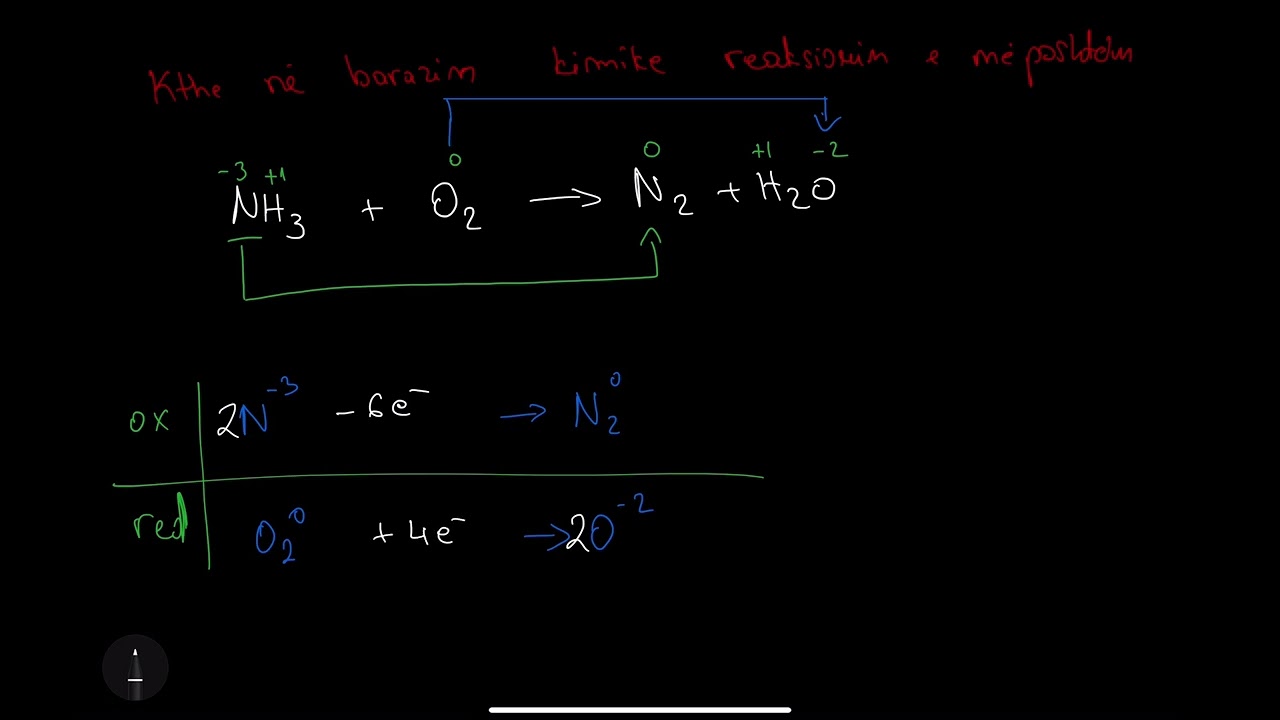 Kthe në barazim kimike reaksionin e mëposhtëm
-3 +1 0 0 +1 -2
NH3 + O2 → N2 + H2O
ox 2N-3 - 6e- → N20
red O20 + 4e- → 2O-2